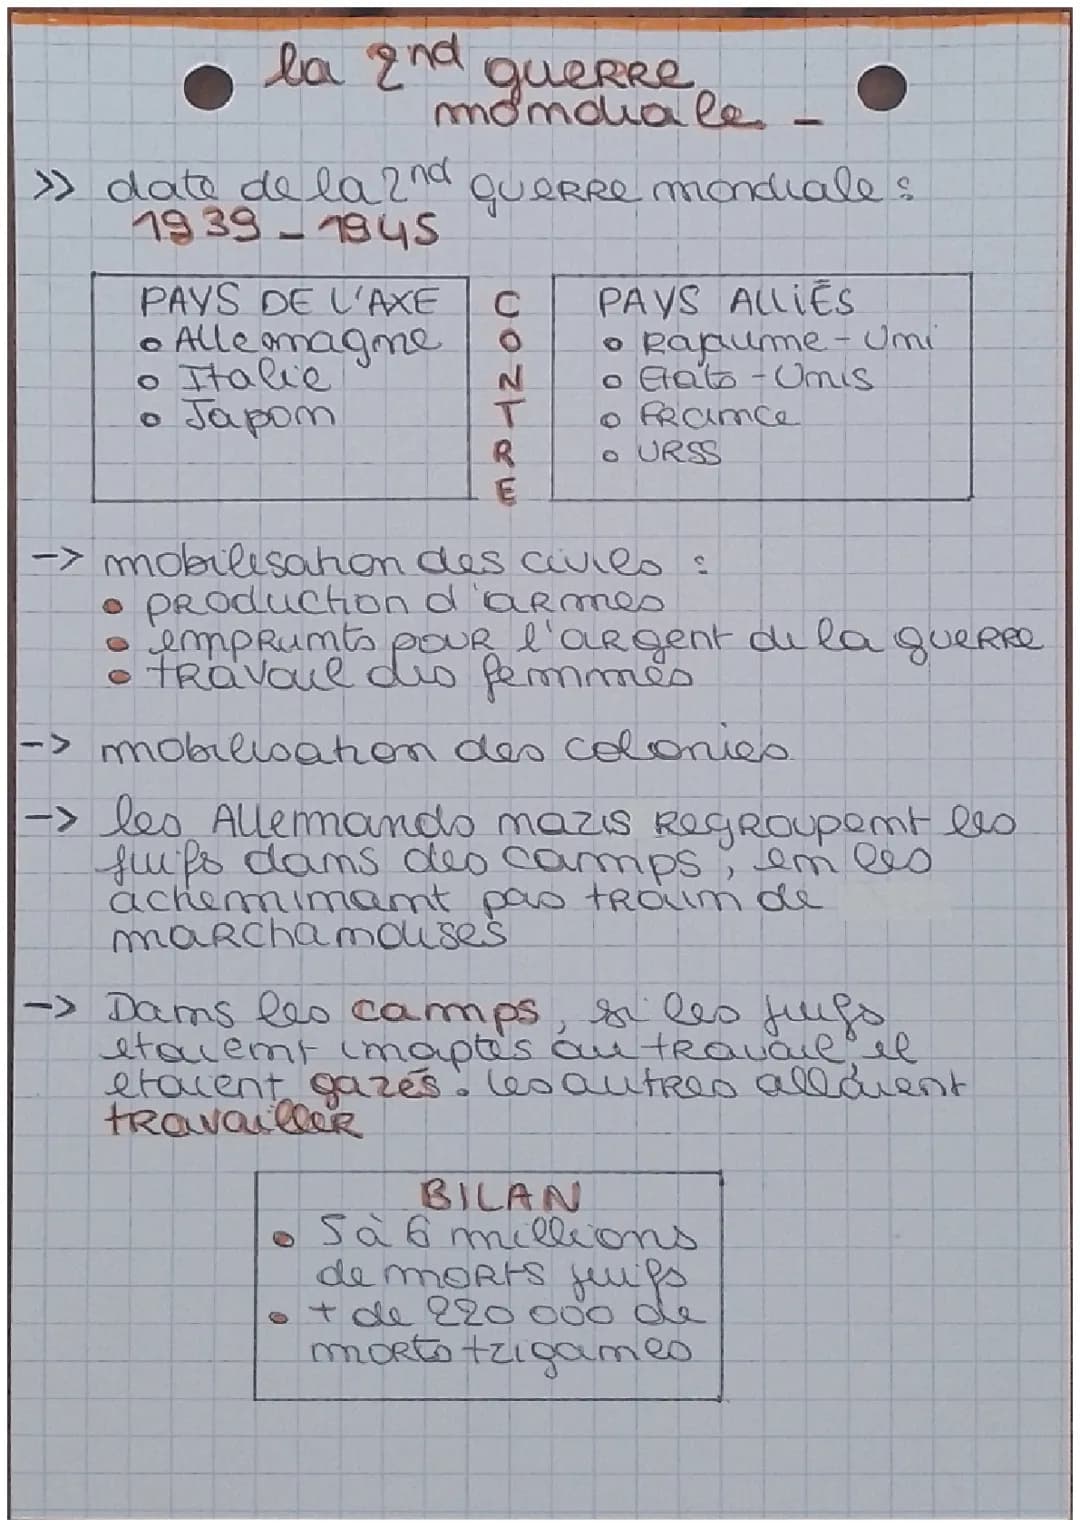 la 2nd guerre
mondiale -
>> date de la 2nd guerre mondiale :
1939 - 1945
PAYS DE L'AXE
• Allemagne
• Italie
• Japon
CONTRE
PAYS ALLIÉS
• Royaume-Uni
• Etats-Unis
• France
• URSS
-> mobilisation des civils :
• production d'armes
• emprunts pour l'argent de la guerre
• travail des femmes
-> mobilisation des colonies
-> les Allemands nazis regroupent les
juifs dans des camps, en les
acheminant pas train de
marchandises
-> Dans les camps, si les juifs
etaient inaptes au travail il
etaient gazés. les autres allaient
travailler
BILAN
• 5 à 6 millions
de morts juifs
• + de 220 000 de
morts tziganes